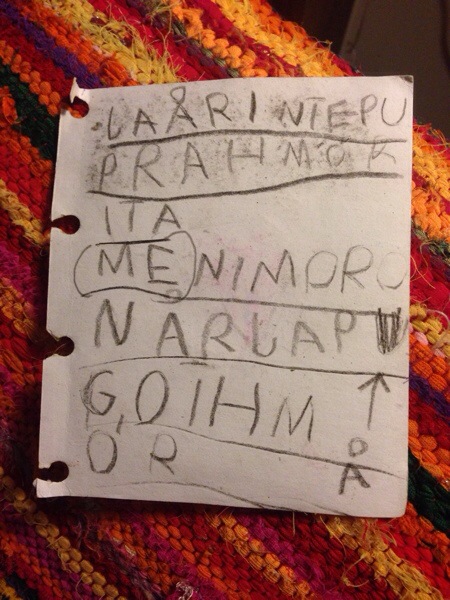 LAÅRINTEPU
PRAHMÖR
ITA
MENIMORO
NÄRLAP
G,OIHM
OR Å